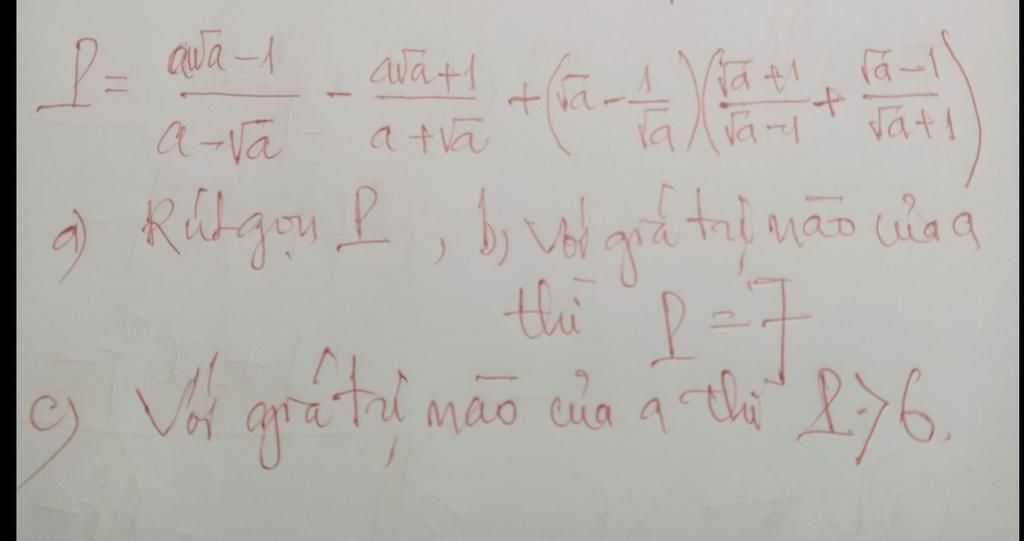 P = \frac{a\sqrt{a}-1}{a-\sqrt{a}} - \frac{a\sqrt{a}+1}{a+\sqrt{a}} + \left(\sqrt{a} - \frac{1}{\sqrt{a}}\right)\left(\frac{\sqrt{a}+1}{\sqrt{a}-1} + \frac{\sqrt{a}-1}{\sqrt{a}+1}\right)
a) Rút gọn P , b, Với giá trị nào của a
thì P = 7
c) Với giá trị nào của a thì P > 6.